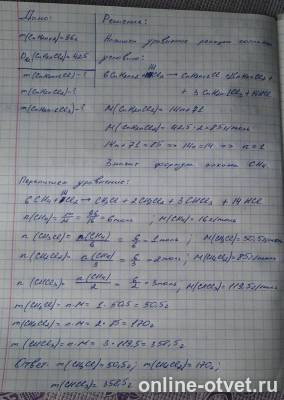 Дано:
m(CnH2n+2)=96г
DH2(CnH2nCl2)=42,5
m(CnH2n+1Cl)-?
m(CnH2nCl2)-?
m(CnH2n-1Cl3)-?
Решение:
Напишем уравнение реакции согласно
условию:
M(CnH2nCl2)=14n+71
M(CnH2nCl2)=42,5·2=85г/моль
14n+71=85 => 14n=14 => n=1
Значит формула алкана CH4.
Перепишем уравнение:
6CH4+ Cl2 → CH3Cl + 2CH2Cl2 + 3CHCl3 + 14HCl
n(CH4)= = 96/16 = 6моль ; M(CH4)=16г/моль
n(CH3Cl)= n(CH4)/6 = 6/6 = 1моль ; M(CH3Cl)=50,5г/моль
n(CH2Cl2)= n(CH4)/3 = 6/3 = 2моль ; M(CH2Cl2)=85г/моль
n(CHCl3)= n(CH4)/2 = 6/2 = 3моль ; M(CHCl3)=119,5г/моль
m(CH3Cl)=n·M= 1·50,5=50,5г
m(CH2Cl2)=n·M= 2·85=170г
m(CHCl3)=n·M= 3·119,5=358,5г
Ответ: m(CH3Cl)=50,5г; m(CH2Cl2)=170г;
m(CHCl3)=358,5г
online-otvet.ru